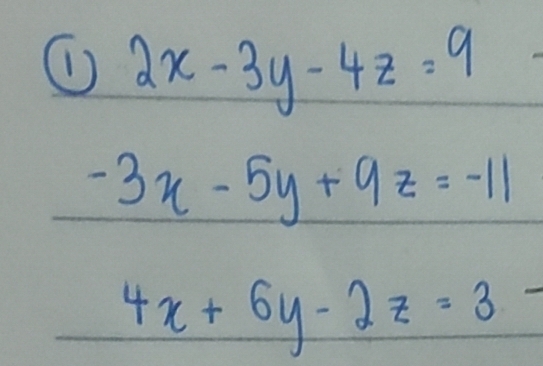 ① 2x - 3y - 4z = 9 -
-3x - 5y + 9z = -11
4x + 6y - 2z = 3 -